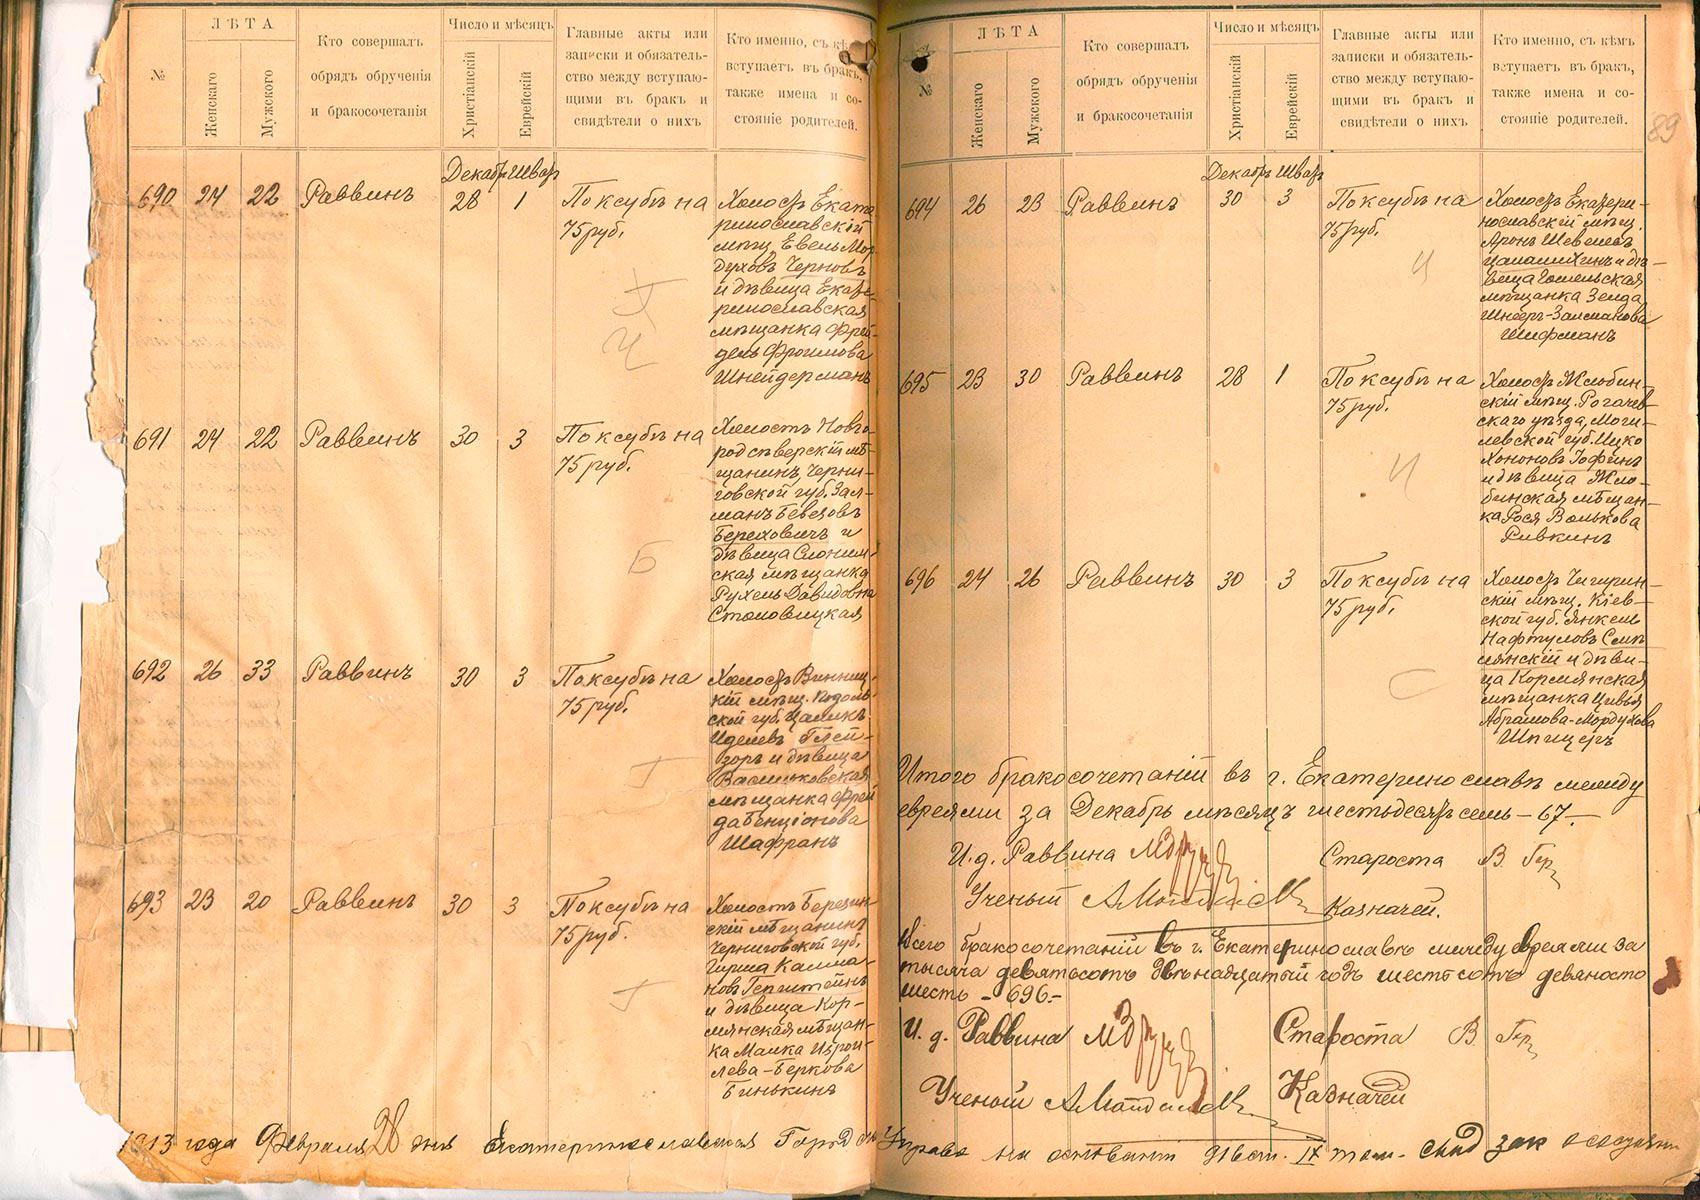 №
ЛѢТА
Женскаго
Мужского
Кто совершалъ
обрядъ обрученія
и бракосочетанія
Число и мѣсяцъ
Христіанскій
Еврейскій
Главные акты или
записки и обязатель-
ство между вступаю-
щими въ бракъ и
свидѣтели о нихъ
Кто именно, съ кѣмъ
вступаетъ въ бракъ,
также имена и со-
стояніе родителей.
Декабрь Шватъ
690 24 22 Раввинъ 28 1 По ксубѣ на
75 руб.
Холостъ Екате
ринославскій
мѣщ. Евель Мор-
духовъ Черновъ
и дѣвица Екате-
ринославская
мѣщанка Фрей-
дель Фроимова
Шнейдерманъ
Ч
691 24 22 Раввинъ 30 3 По ксубѣ на
75 руб.
Холостъ Новго-
родсѣверскій мѣ-
щанинъ, Черни-
говской губ. Зал-
манъ
Береховичъ и
дѣвица Слоним-
ская мѣщанка
Рухель Давидовна
Столовицкая
Б
692 26 33 Раввинъ 30 3 По ксубѣ на
75 руб.
Холостъ Винниц-
кій мѣщ. Подоль-
ской губ. Цаликъ
Иделевъ Глей-
зоръ и дѣвица
Васильковская
мѣщанка Фрей
да Бенціонова
Шафранъ
Г
693 23 20 Раввинъ 30 3 По ксубѣ на
75 руб.
Холостъ Березин-
скій мѣщанинъ
Черниговской губ.
Гирша Калма-
новъ Гепштейнъ
и дѣвица Кор-
мянская мѣщан-
ка Малка Изрои-
лева-Беркова
Бинькинъ
Г
1913 года Февраля 28 дня Екатеринославская Город
89
№
ЛѢТА
Женскаго
Мужского
Кто совершалъ
обрядъ обрученія
и бракосочетанія
Число и мѣсяцъ
Христіанскій
Еврейскій
Главные акты или
записки и обязатель-
ство между вступаю-
щими въ бракъ и
свидѣтели о нихъ
Кто именно, съ кѣмъ
вступаетъ въ бракъ,
также имена и со-
стояніе родителей.
Декабрь Шватъ
694 26 23 Раввинъ 30 3 По ксубѣ на
75 руб.
Холостъ Екатери-
нославскій мѣщ.
Аронъ Шевелевъ
и дѣ-
вица Гомельская
мѣщанка Зелда
Шнееръ-Залманова
Шифманъ
Ц
695 23 30 Раввинъ 28 1 По ксубѣ на
75 руб.
Холостъ Жлобин-
скій мѣщ. Рогачев-
скаго уѣзда, Моги-
левской губ. Ицко
Хононовъ Іофинъ
и дѣвица Жло-
бинская мѣщан-
ка Рося Волькова
Ривкинъ
И
696 24 26 Раввинъ 30 3 По ксубѣ на
75 руб.
Холостъ Чигирин-
скій мѣщ. Кіев-
ской губ. Янкель
Нафтуловъ Смѣ
лянскій и дѣви-
ца Кормянская
мѣщанка Цивья
Абрамова-Мордухова
Шпицеръ
С
Итого бракосочетаній въ г. Екатеринославѣ между
евреями за Декабрь мѣсяцъ шестьдесятъ семь – 67.–
И. д. Раввина Староста В.
Ученый Казначей.
Всего бракосочетаній въ г. Екатеринославѣ между евреями за
тысяча девятьсотъ двѣнадцатый годъ шестьсотъ девяносто
шесть – 696.–
И. д. Раввина Староста В.
Ученый Казначей
Управа на основаніи IX том. Свод зак о состояніи